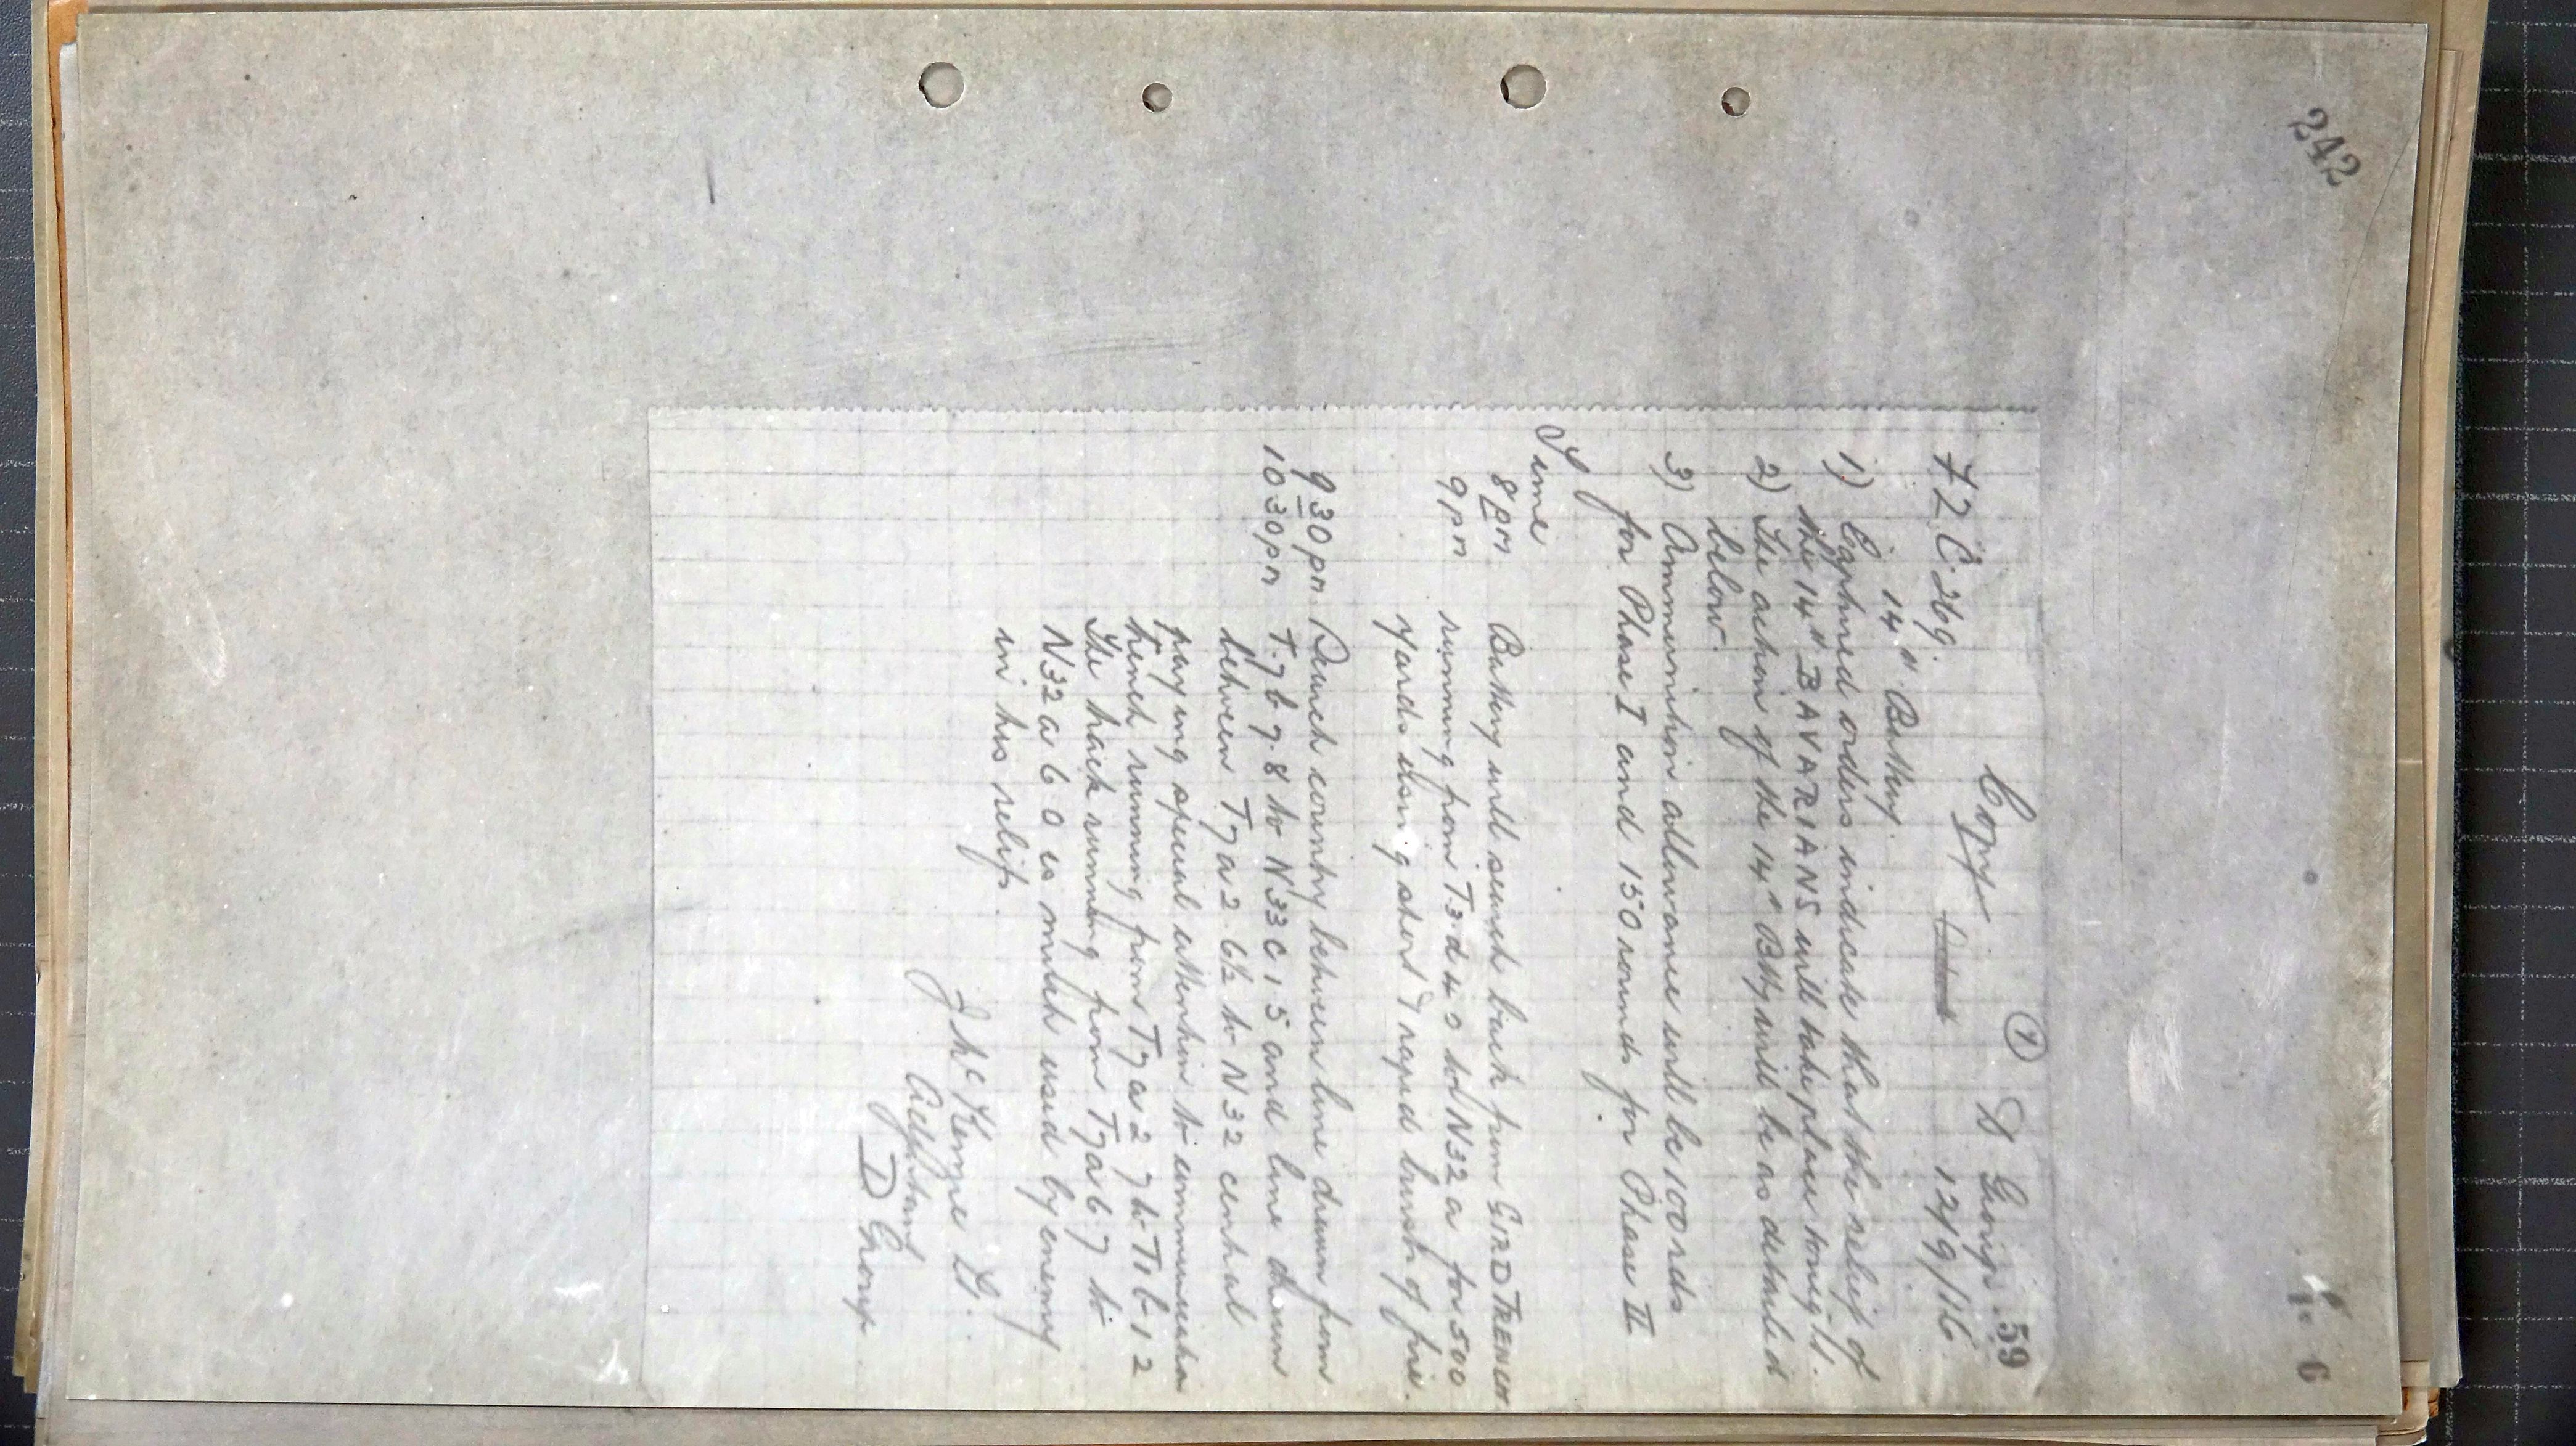 242
59
D Group
Copy
12/9/16.
14" Battery
1) Captured orders indicate that the relief of
the 14" BAVARIANS will take place tonight.
2) The action of the 14" Bty will be as detailed
below.
3) Ammunition allowance will be 100 rds
for Phase I and 150 rounds for Phase II
Time
8 pm Battery will search back from GIRD TRENCH
9 pm running from T3d 4 0 to N32a for 500
yards using short & rapid bursts of fire.
9 30 pm. Search country between line drawn from
10 30 pm T.7b 7.8 to N33 C 1 5 and line drawn
between T7a2 6½ to N32 central
paying special attention to communication
trench running from T7a2 7 to T1b 1 2
The track running from T7a6 7 to
N32a 6 0 is much used by enemy
in his reliefs.
J McKenzie Lt.
Adjutant
D Group